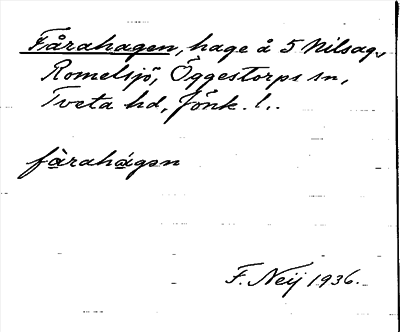 Fårahagen, hage å 5 Nilsag,
Romelsjö, Öggestorps sn,
Tveta hd, Jönk. l..
fàrahágən
F. Neij 1936.